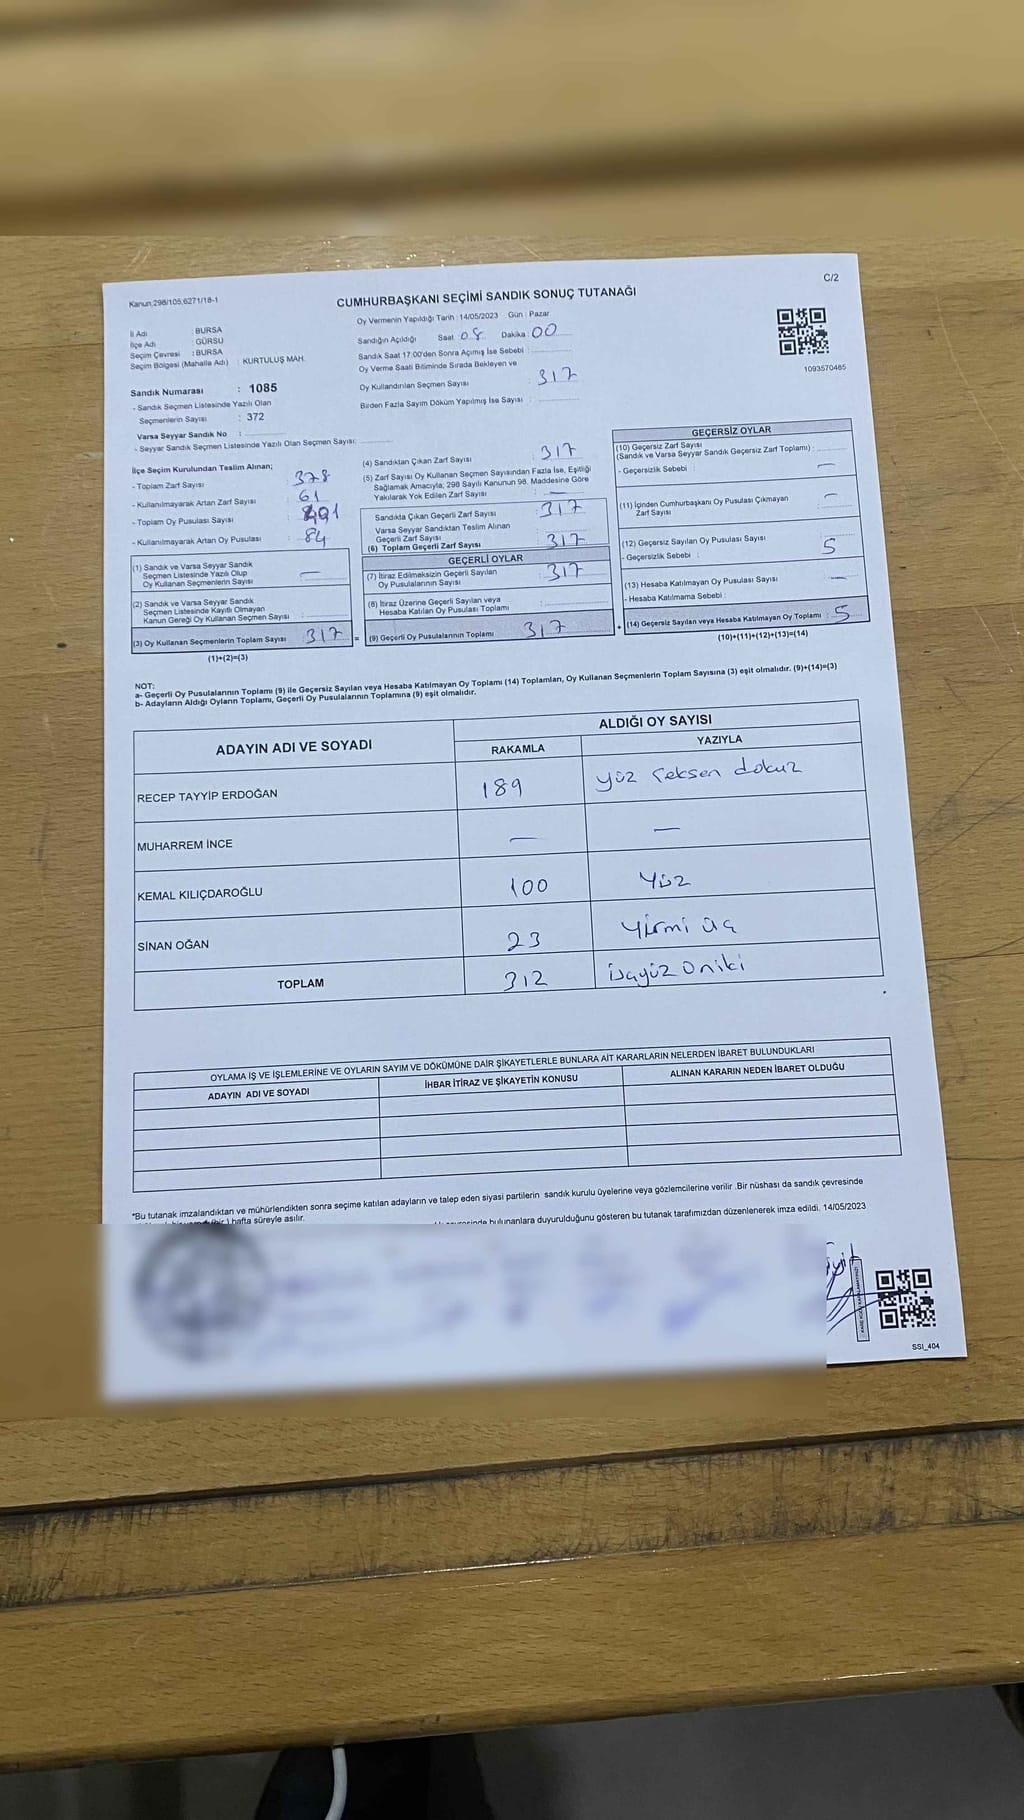 Kanun;298/105,6271/18-1
C/2
CUMHURBAŞKANI SEÇİMİ SANDIK SONUÇ TUTANAĞI
İl Adı : BURSA
İlçe Adı : GÜRSU
Seçim Çevresi : BURSA
Seçim Bölgesi (Mahalle Adı) : KURTULUŞ MAH.
Sandık Numarası : 1085
- Sandık Seçmen Listesinde Yazılı Olan
Seçmenlerin Sayısı : 372
Varsa Seyyar Sandık No :
- Seyyar Sandık Seçmen Listesinde Yazılı Olan Seçmen Sayısı:
Oy Vermenin Yapıldığı Tarih : 14/05/2023 Gün : Pazar
Sandığın Açıldığı Saat 08 Dakika : 00
Sandık Saat 17.00'den Sonra Açımış İse Sebebi :
Oy Verme Saati Bitiminde Sırada Bekleyen ve
Oy Kullandırılan Seçmen Sayısı : 317
Birden Fazla Sayım Döküm Yapılmış İse Sayısı :
1093570465
İlçe Seçim Kurulundan Teslim Alınan;
- Toplam Zarf Sayısı : 378
- Kullanılmayarak Artan Zarf Sayısı : 61
- Toplam Oy Pusulası Sayısı : 401
- Kullanılmayarak Artan Oy Pusulası : 84
(1) Sandık ve Varsa Seyyar Sandık
Seçmen Listesinde Yazılı Olup
Oy Kullanan Seçmenlerin Sayısı : —
(2) Sandık ve Varsa Seyyar Sandık
Seçmen Listesinde Kayıtlı Olmayan
Kanun Gereği Oy Kullanan Seçmen Sayısı :
(3) Oy Kullanan Seçmenlerin Toplam Sayısı : 317 =
(1)+(2)=(3)
(4) Sandıktan Çıkan Zarf Sayısı : 317
(5) Zarf Sayısı Oy Kullanan Seçmen Sayısından Fazla İse, Eşitliği
Sağlamak Amacıyla; 298 Sayılı Kanunun 98. Maddesine Göre
Yakılarak Yok Edilen Zarf Sayısı : —
Sandıkta Çıkan Geçerli Zarf Sayısı : 317
Varsa Seyyar Sandıktan Teslim Alınan
Geçerli Zarf Sayısı
(6) Toplam Geçerli Zarf Sayısı : 317
GEÇERLİ OYLAR
(7) İtiraz Edilmeksizin Geçerli Sayılan
Oy Pusulalarının Sayısı : 317
(8) İtiraz Üzerine Geçerli Sayılan veya
Hesaba Katılan Oy Pusulası Toplamı :
(9) Geçerli Oy Pusulalarının Toplamı : 317 +
GEÇERSİZ OYLAR
(10) Geçersiz Zarf Sayısı
(Sandık ve Varsa Seyyar Sandık Geçersiz Zarf Toplamı) :
- Geçersizlik Sebebi : —
(11) İçinden Cumhurbaşkanı Oy Pusulası Çıkmayan
Zarf Sayısı : —
(12) Geçersiz Sayılan Oy Pusulası Sayısı : 5
- Geçersizlik Sebebi :
(13) Hesaba Katılmayan Oy Pusulası Sayısı : —
- Hesaba Katılmama Sebebi :
(14) Geçersiz Sayılan veya Hesaba Katılmayan Oy Toplamı : 5
(10)+(11)+(12)+(13)=(14)
NOT:
a- Geçerli Oy Pusulalarının Toplamı (9) ile Geçersiz Sayılan veya Hesaba Katılmayan Oy Toplamı (14) Toplamları, Oy Kullanan Seçmenlerin Toplam Sayısına (3) eşit olmalıdır. (9)+(14)=(3)
b- Adayların Aldığı Oyların Toplamı, Geçerli Oy Pusulalarının Toplamına (9) eşit olmalıdır.
ADAYIN ADI VE SOYADI
ALDIĞI OY SAYISI
RAKAMLA YAZIYLA
RECEP TAYYİP ERDOĞAN 189 yüz seksen dokuz
MUHARREM İNCE — —
KEMAL KILIÇDAROĞLU 100 Yüz
SİNAN OĞAN 23 Yirmi üç
TOPLAM 312 üçyüz oniki
OYLAMA İŞ VE İŞLEMLERİNE VE OYLARIN SAYIM VE DÖKÜMÜNE DAİR ŞİKAYETLERLE BUNLARA AİT KARARLARIN NELERDEN İBARET BULUNDUKLARI
ADAYIN ADI VE SOYADI İHBAR İTİRAZ VE ŞİKAYETİN KONUSU ALINAN KARARIN NEDEN İBARET OLDUĞU
*Bu tutanak imzalandıktan ve mühürlendikten sonra seçime katılan adayların ve talep eden siyasi partilerin sandık kurulu üyelerine veya gözlemcilerine verilir .Bir nüshası da sandık çevresinde
hafta süreyle asılır.
bulunanlara duyurulduğunu gösteren bu tutanak tarafımızdan düzenlenerek imza edildi. 14/05/2023
SSI_404